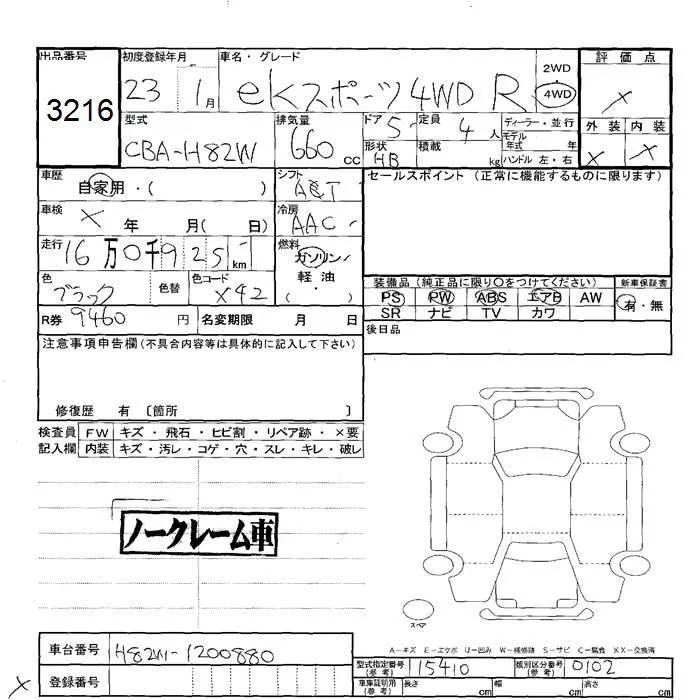 出品番号 初度登録年月 車名・グレード 評価点
3216 23 1月 eKスポーツ 4WD R 2WD 4WD ×
型式 排気量 ドア 定員 ディーラー・並行 外装 内装
CBA-H82W 660cc 5 4人 モデル年式 年 × ×
形状 HB 積載 kg ハンドル 左・右
車歴 シフト セールスポイント (正常に機能するものに限ります)
自家用・( ) A&T
車検 冷房
× 年 月( 日) AAC
走行 燃料
16万0千925 km ガソリン・軽油・( )
色 色替 色コード 装備品 (純正品に限り○をつけてください) 新車保証書
ブラック X42 PS PW ABS エアB AW 有・無
SR ナビ TV カワ
R券 9460円 名変期限 月 日 後日品
注意事項申告欄(不具合内容等は具体的に記入して下さい)
修復歴 有 〔箇所 〕
検査員 FW キズ・飛石・ヒビ割・リペア跡・×要
記入欄 内装 キズ・汚レ・コゲ・穴・スレ・キレ・破レ
ノークレーム車
スペア
A-キズ E-エクボ U-凹み W-補修跡 S-サビ C-腐食 XX-交換済
車台番号 H82W-1200880 型式指定番号(参考) 115410 類別区分番号(参考) 0102
× 登録番号 車庫証明用(参考) 長さ cm 幅 cm 高さ cm